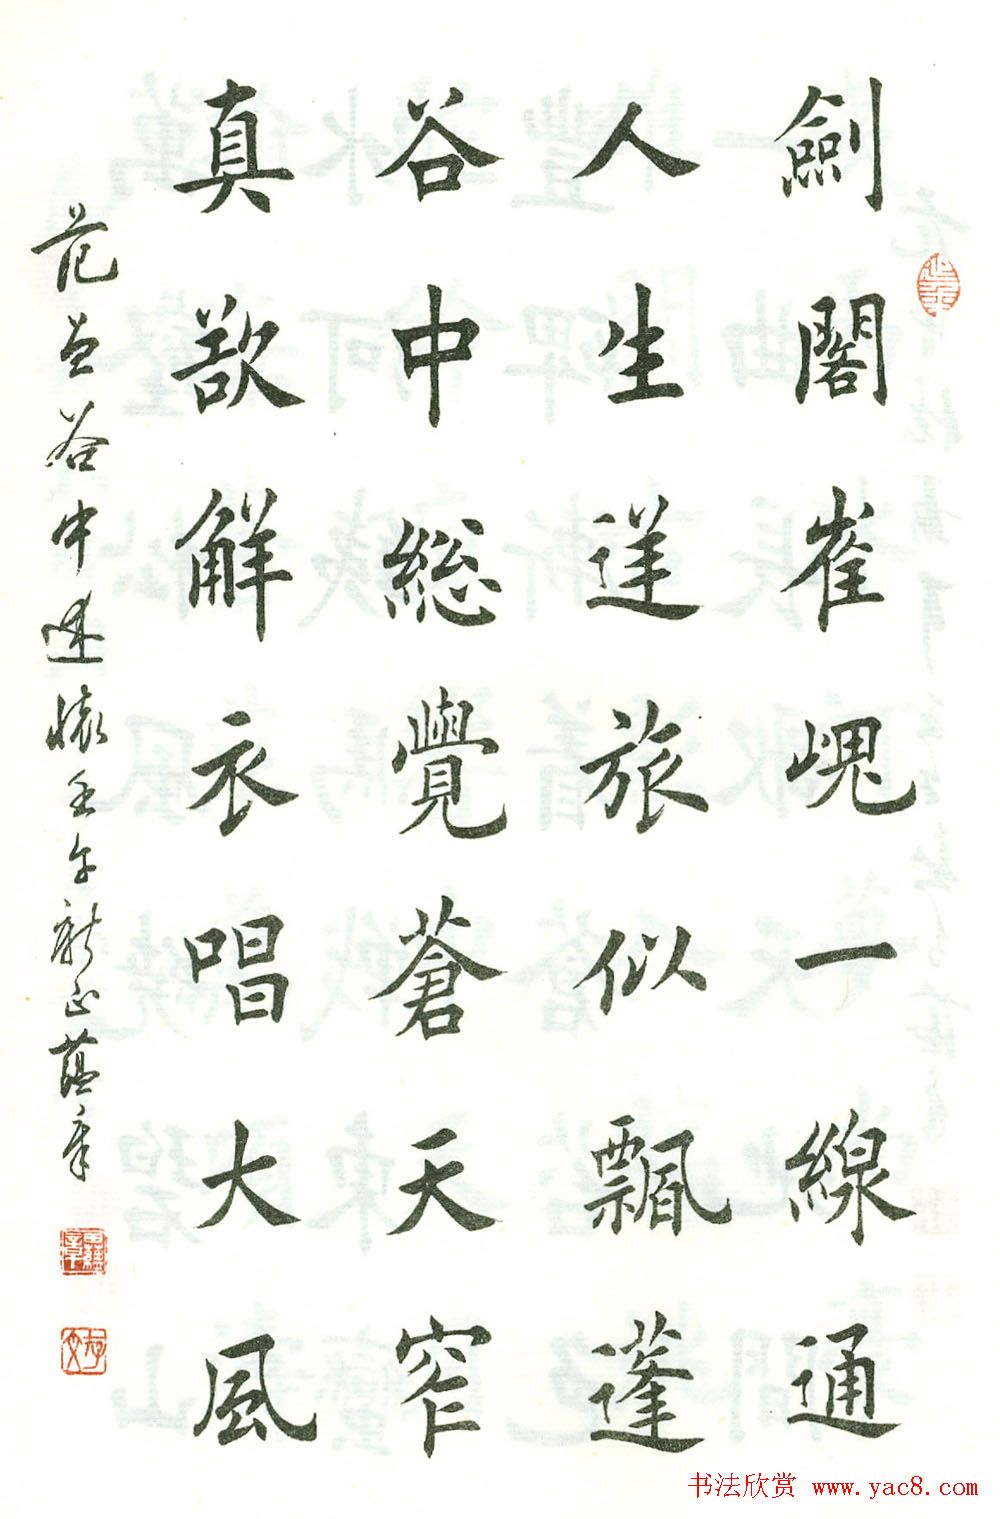 劍閣崔嵬一線通
人生逆旅似飄蓬
谷中総覺蒼天窄
真欲觧衣唱大風
范曾谷中述懷壬午新正蘊章
书法欣赏 www.yac8.com